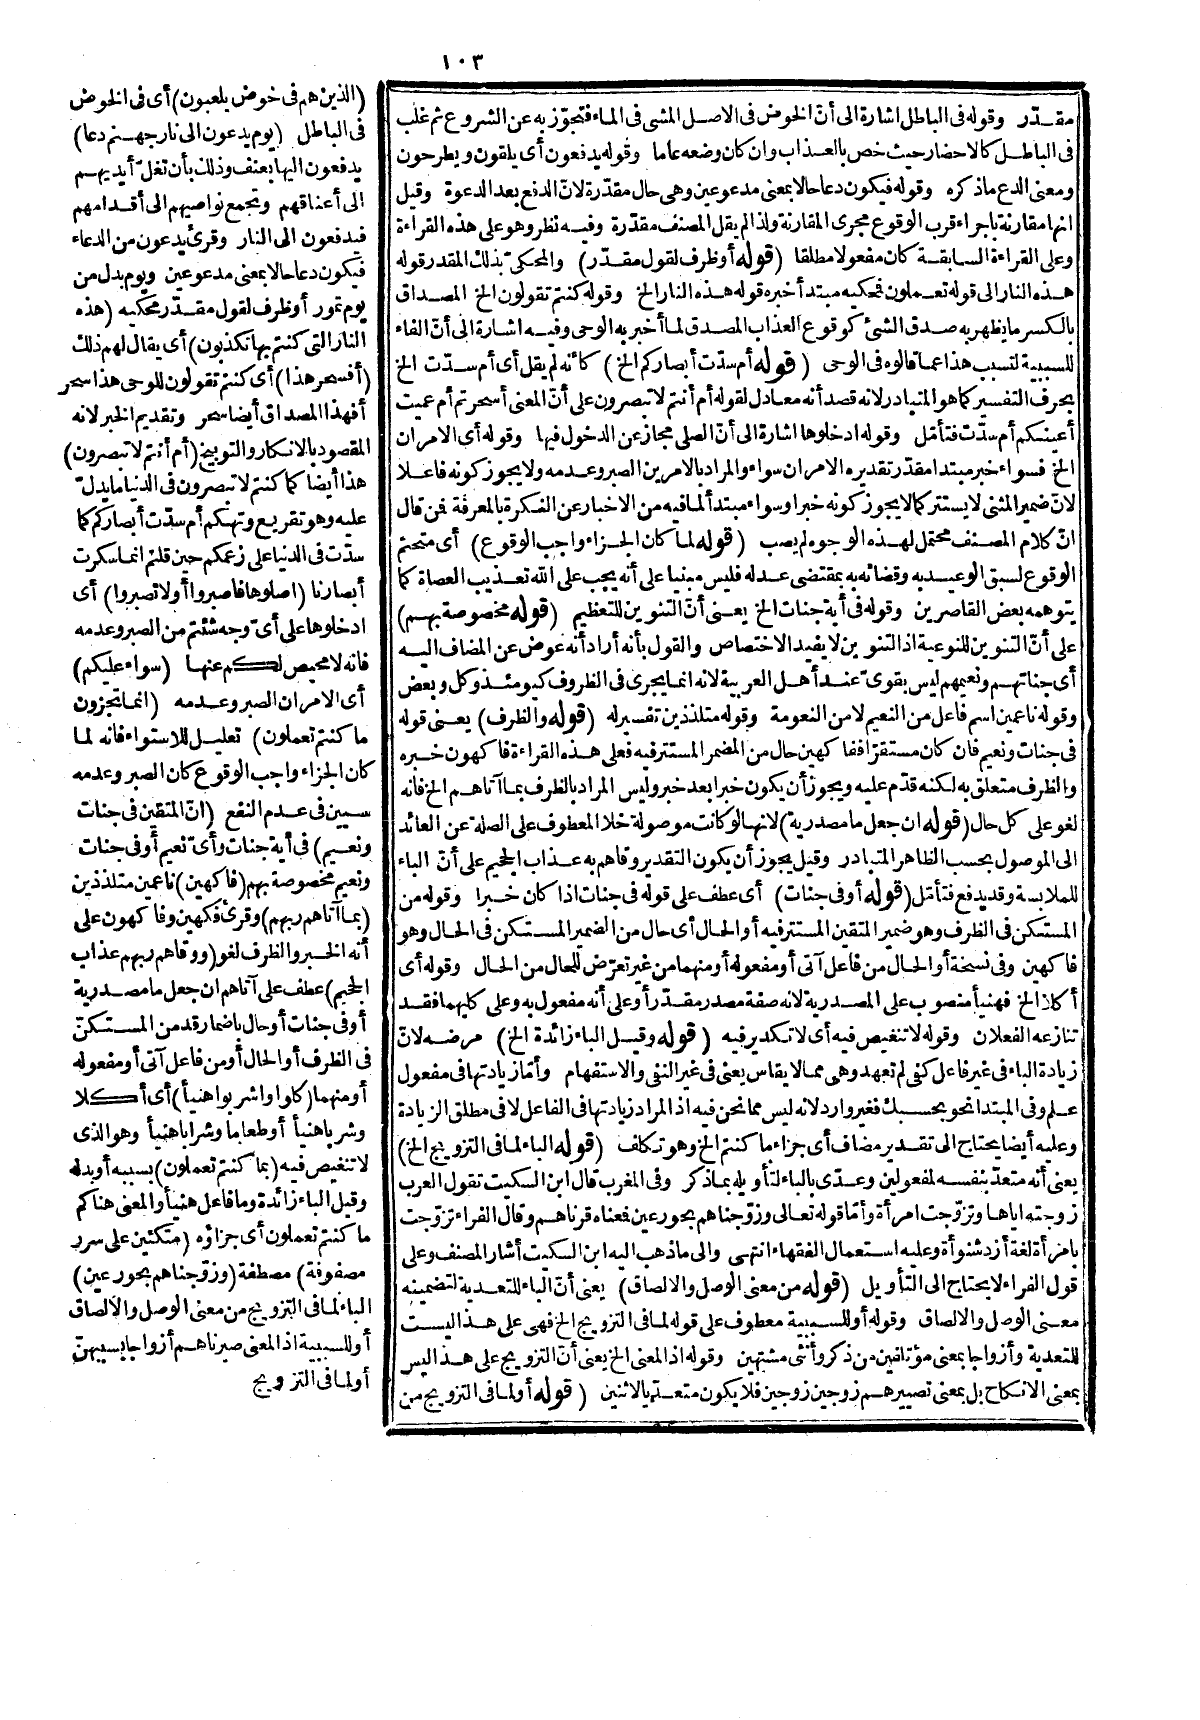 ١٠٣
مقدّر وقوله فى الباطل اشارة الى أنّ الخوض فى الاصل المشى فى الماء فتجوّز به عن الشروع ثم غلب
فى الباطل كالاحضار حيث خص بالعذاب وان كان وضعه عاما وقوله يدفعون أى يلقون ويطرحون
ومعنى الدع ماذكره وقوله فيكون دعا حالا بمعنى مدعوعين وهى حال مقدّرة لانّ الدفع بعد الدعوة وقيل
انها مقارنة باجراء قرب الوقوع مجرى المقارنة ولذا لم يقل المصنف مقدّرة وفيه نظر وهو على هذه القراءة
وعلى القراءة السابقة كان مفعولا مطلقا (قوله أو ظرف لقول مقدّر) والمحكى بذلك المقدر قوله
هذه النار الى قوله تعملون فمحكيه مبتدأ خبره قوله هذه النار الخ وقوله كنتم تقولون الخ المصداق
بالكسر ما يظهر به صدق الشئ كوقوع العذاب المصدق لما أخبر به الوحى وفيه اشارة الى أنّ الفاء
للسببية لتسبب هذا عما قالوه فى الوحى (قوله أم سدّت أبصاركم الخ) كانه لم يقل أى أم سدّت الخ
بحرف التفسير كما هو المتبادر لانه قصد أنه معادل لقوله أم أنتم لا تبصرون على أنّ المعنى أسحرتم أم عميت
أعينكم أم سدّت فتأمّل وقوله ادخلوها اشارة الى أنّ الصلى مجاز عن الدخول فيها وقوله أى الامران
الخ فسواء خبر مبتدا مقدّر تقديره الامران سواء والمراد بالامرين الصبر وعدمه ولا يجوز كونه فاعلا
لانّ ضمير المثنى لا يستتر كما لا يجوز كونه خبرا وسواء مبتدأ لما فيه من الاخبار عن النكرة بالمعرفة فمن قال
انّ كلام المصنف محتمل لهذه الوجوه لم يصب (قوله لما كان الجزاء واجب الوقوع) أى متحتم
الوقوع لسبق الوعيد به وقضائه به بمقتضى عدله فليس مبنيا على أنه يجب على الله تعذيب العصاة كما
يتوهمه بعض القاصرين وقوله فى أية جنات الخ يعنى أنّ التنوين للتعظيم (قوله مخصوصة بهم)
على أنّ التنوين للنوعية اذ التنوين لا يفيد الاختصاص والقول بأنه أراد أنه عوض عن المضاف اليه
أى جناتهم ونعيمهم ليس بقوى عند أهل العربية لانه انما يجرى فى الظروف كيومئذ وكل وبعض
وقوله ناعمين اسم فاعل من النعيم لا من النعومة وقوله متلذذين تفسير له (قوله والظرف) يعنى قوله
فى جنات ونعيم فان كان مستقرّا ففاكهين حال من المضمر المستتر فيه فعلى هذه القراءة فاكهون خبره
والظرف متعلق به لكنه قدّم عليه ويجوز أن يكون خبرا بعد خبر وليس المراد بالظرف بما آتاهم الخ فانه
لغو على كل حال (قوله ان جعل ما مصدرية) لانها لو كانت موصولة خلا المعطوف على الصلة عن العائد
الى الموصول بحسب الظاهر المتبادر وقيل يجوز أن يكون التقدير وقاهم به عذاب الجحيم على أنّ الباء
للملابسة وقد يدفع فتأمّل (قوله أو فى جنات) أى عطف على قوله فى جنات اذا كان خبرا وقوله من
المستكن فى الظرف وهو ضمير المتقين المستتر فيه أو الحال أى حال من الضمير المستكن فى الحال وهو
فاكهين وفى نسخة أو الحال من فاعل آتى أو مفعوله أو منهما من غير تعرّض للحال من الحال وقوله أى
أكلا الخ فهنيأ منصوب على المصدرية لانه صفة مصدر مقدّر أو على أنه مفعول به وعلى كليهما فقد
تنازعه الفعلان وقوله لا تنغيص فيه أى لا تكدير فيه (قوله وقيل الباء زائدة الخ) مرضه لانّ
زيادة الباء فى غير فاعل كفى لم تعهد وهى مما لا يقاس يعنى فى غير النفى والاستفهام وأمّا زيادتها فى مفعول
علم وفى المبتدا نحو بحسبك فغير وارد لانه ليس مما نحن فيه اذ المراد زيادتها فى الفاعل لا فى مطلق الزيادة
وعليه أيضا يحتاج الى تقدير مضاف أى جزاء ما كنتم الخ وهو تكلف (قوله الباء لما فى التزويج الخ)
يعنى أنه متعدّ بنفسه لمفعولين وعدّى بالباء لتأويله بما ذكر وفى المغرب قال ابن السكيت تقول العرب
زوجته اياها وتزوّجت امرأة وأمّا قوله تعالى وزوّجناهم بحور عين فمعناه قرناهم وقال الفراء تزوّجت
بامرأة لغة أزد شنوأة وعليه استعمال الفقهاء انتهى والى ما ذهب اليه ابن السكيت أشار المصنف وعلى
قول الفراء لا يحتاج الى التأويل (قوله من معنى الوصل والالصاق) يعنى أنّ الباء للتعدية لتضمينه
معنى الوصل والالصاق وقوله أو للسببية معطوف على قوله لما فى التزويج الخ فهى على هذا ليست
للتعدية وأزواجا بمعنى مؤتلفين من ذكر وأنثى مشتهين وقوله اذ المعنى الخ يعنى أنّ التزويج على هذا ليس
بمعنى الانكاح بل بمعنى تصييرهم زوجين زوجين فلا يكون متعديا لاثنين (قوله أو لما فى التزويج من
(الذين هم فى خوض يلعبون) أى فى الخوض
فى الباطل (يوم يدعون الى نار جهنم دعا)
يدفعون اليها بعنف وذلك بأن تغلّ أيديهم
الى أعناقهم وتجمع نواصيهم الى أقدامهم
فيدفعون الى النار وقرئ يدعون من الدعاء
فيكون دعا حالا بمعنى مدعوعين ويوم بدل من
يوم تمور أو ظرف لقول مقدّر محكيه (هذه
النار التى كنتم بها تكذبون) أى يقال لهم ذلك
(أفسحر هذا) أى كنتم تقولون للوحى هذا سحر
أفهذا المصداق أيضا سحر وتقديم الخبر لانه
المقصود بالانكار والتوبيخ (أم أنتم لا تبصرون)
هذا أيضا كما كنتم لا تبصرون فى الدنيا ما يدلّ
عليه وهو تقريع وتهكم أم سدّت أبصاركم كما
سدّت فى الدنيا على زعمكم حين قلتم انما سكرت
أبصارنا (اصلوها فاصبروا أو لا تصبروا) أى
ادخلوها على أى وجه شئتم من الصبر وعدمه
فانه لا محيص لكم عنها (سواء عليكم)
أى الامران الصبر وعدمه (انما تجزون
ما كنتم تعملون) تعليل للاستواء فانه لما
كان الجزاء واجب الوقوع كان الصبر وعدمه
سيين فى عدم النفع (انّ المتقين فى جنات
ونعيم) فى أية جنات وأى نعيم أو فى جنات
ونعيم مخصوصة بهم (فاكهين) ناعمين متلذذين
(بما آتاهم ربهم) وقرئ فكهين وفاكهون على
أنه الخبر والظرف لغو (ووقاهم ربهم عذاب
الجحيم) عطف على آتاهم ان جعل ما مصدرية
أو فى جنات أو حال باضمار قد من المستكنّ
فى الظرف أو الحال أو من فاعل آتى أو مفعوله
أو منهما (كلوا واشربوا هنيأ) أى أكلا
وشربا هنيأ أو طعاما وشرابا هنيأ وهو الذى
لا تنغيص فيه (بما كنتم تعملون) بسببه أو بدله
وقيل الباء زائدة وما فاعل هنيأ والمعنى هناكم
ما كنتم تعملون أى جزاؤه (متكئين على سرر
مصفوفة) مصطفة (وزوّجناهم بحور عين)
الباء لما فى التزويج من معنى الوصل والالصاق
أو للسببية اذ المعنى صيرناهم أزواجا بسببهنّ
أو لما فى التزويج